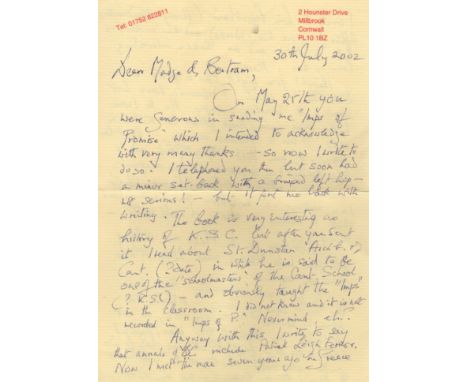 Tel: 01752 822611
2 Hounster Drive
Millbrook
Cornwall
PL10 1BZ
30th July 2002
Dear Madge & Bertram,
On May 25th you
were generous in sending me "Imps of
Promise" which I intended to acknowledge
with very many thanks - so now I write to
do so. I telephoned you then but soon had
a minor set-back with a jumped left hip -
serious! - but it put me back with
writing. The book is very interesting as
history of K.S.C. But after you sent
it I read about St. Dunstan Arch b. of
Cant. (? date) in which he is said to be
one of the "schoolmasters" of the Cant. School
(? KS) - and obviously taught the "Imps"
in the classroom. I do not know and it is not
recorded in "Imps of P." Never mind, eh?
Anyway with this, I write to say
that annals of include Patrick Leigh Fermor.
Now I met the man seven years ago in Greece